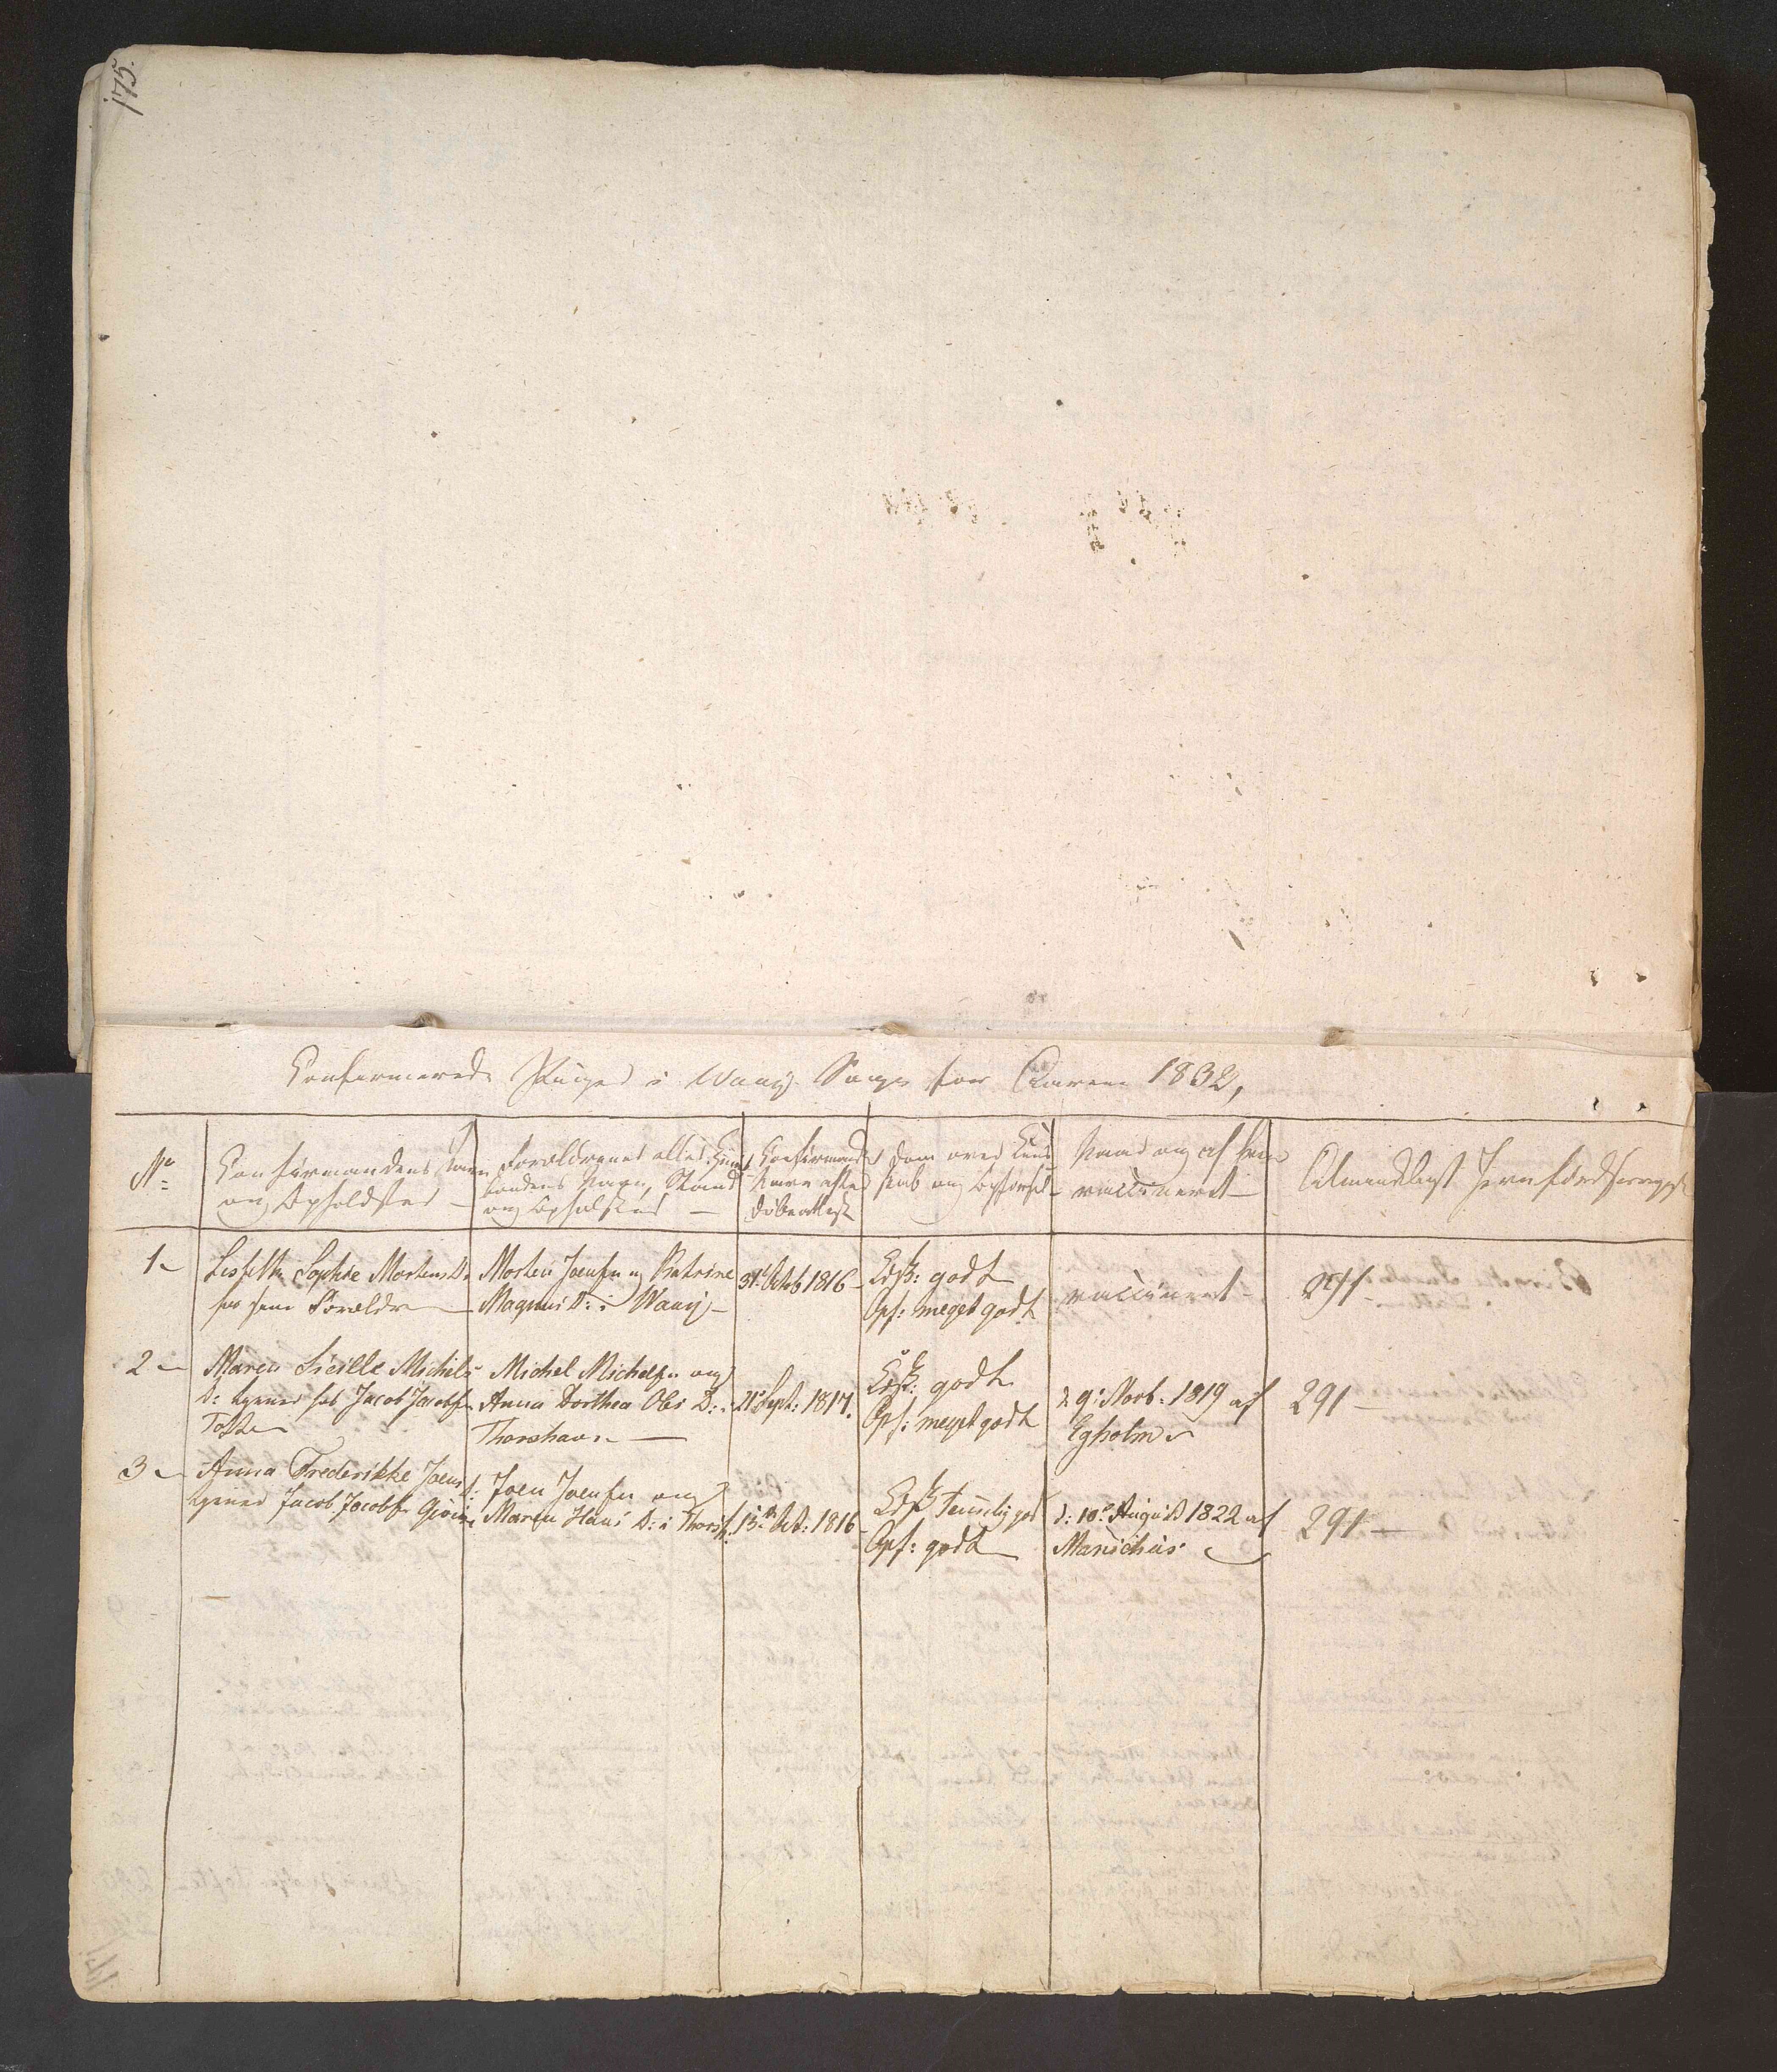 175.
Confirmerede Piger i Waaij Sogn for Aaret 1832,
No
Confirmandens Navn
og Opholdsted —
Forældrenes eller Huus
bondens Navn, Stand
og Opholsted —
Confirmandens
Alder efter
Døbeattest
Dom over Kund
skab og Opførsel
Naar og af hvem
vaccineret —
Almindeligt Jevnførelsesregister
1
Lisbeth Sophie Mortens D:
hos sine Forældre —
Morten Joensen og Katrine
Magnus D: i Waaij —
31 Octob 1816 —
Kdsk: godt
Opf: meget godt
vaccineret —
291 —
2 —
Maren Sicille Michels
D: tjener hos Jacob Jacobsen
Tofte
Michel Michelsen og
Anna Dorthea Oles D: i
Thorshavn —
21 Sept: 1817.
Kdsk: godt
Opf: meget godt
d 9: Novb: 1819 af
Egholm
291 —
3
Anna Frederikke Joens D:
tjener Jacob Jacobsen
Joen Joensen og
Maren Hans D: i Thorsh.
13 Oct: 1816
Kdsk temelig godt
Opf: godt
d: 10 August 1822 af
Manichus
291 —